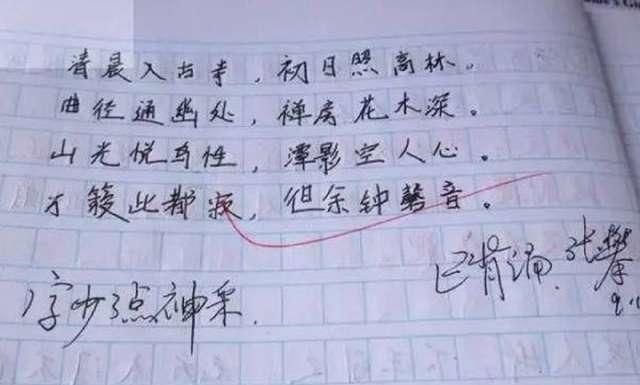 清晨入古寺，初日照高林。
曲径通幽处，禅房花木深。
山光悦鸟性，潭影空人心。
万籁此都寂，但余钟磬音。
已背诵. 张
字少了点神采.